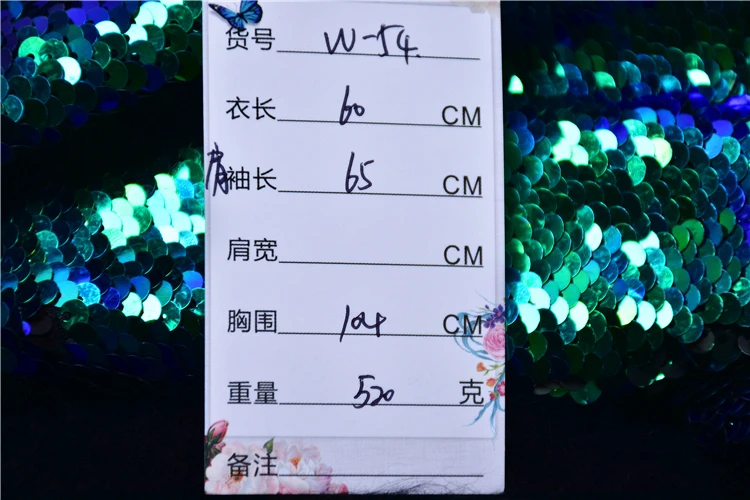 货号 W-54
衣长 60 CM
肩袖长 65 CM
肩宽 CM
胸围 104 CM
重量 520 克
备注